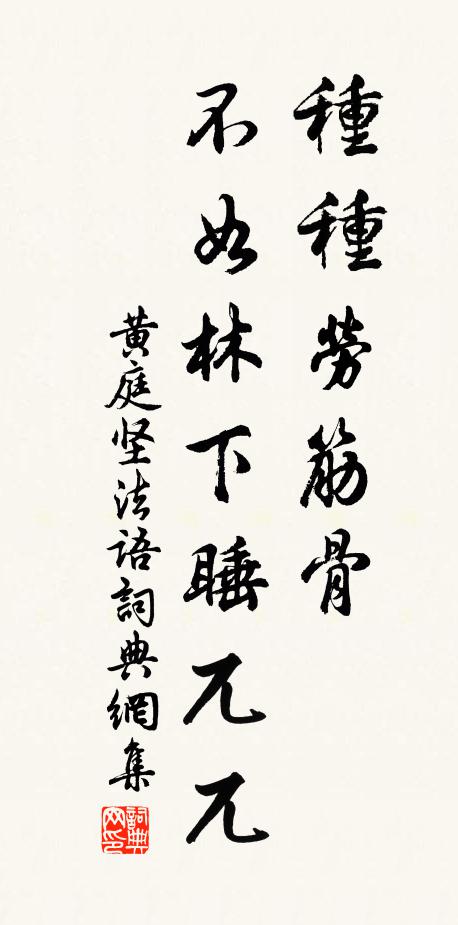 種種勞筋骨
不如林下睡兀兀
黄庭坚法語詞典網集
詞典网印